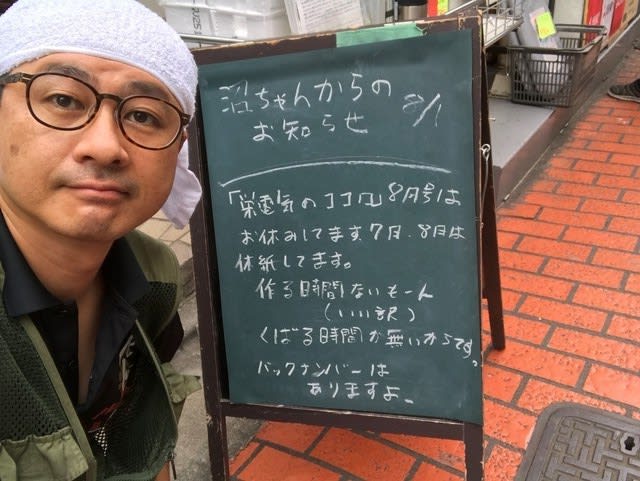 沼ちゃんからの 8/1
お知らせ
「栄電気のココロ」8月号は
お休みしてます、7月、8月は
休紙してます。
作る時間ないもーん
(いい訳)
くばる時間が無いからです。
バックナンバーは
ありますよ。